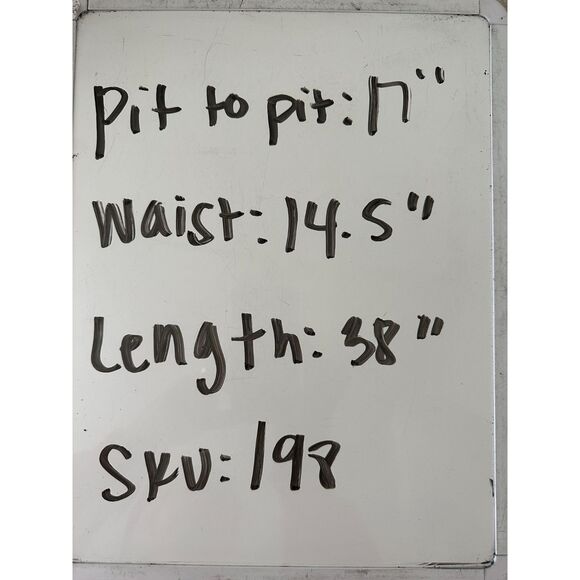 Pit to pit: 17"
Waist: 14.5"
Length: 38"
SKU: 198